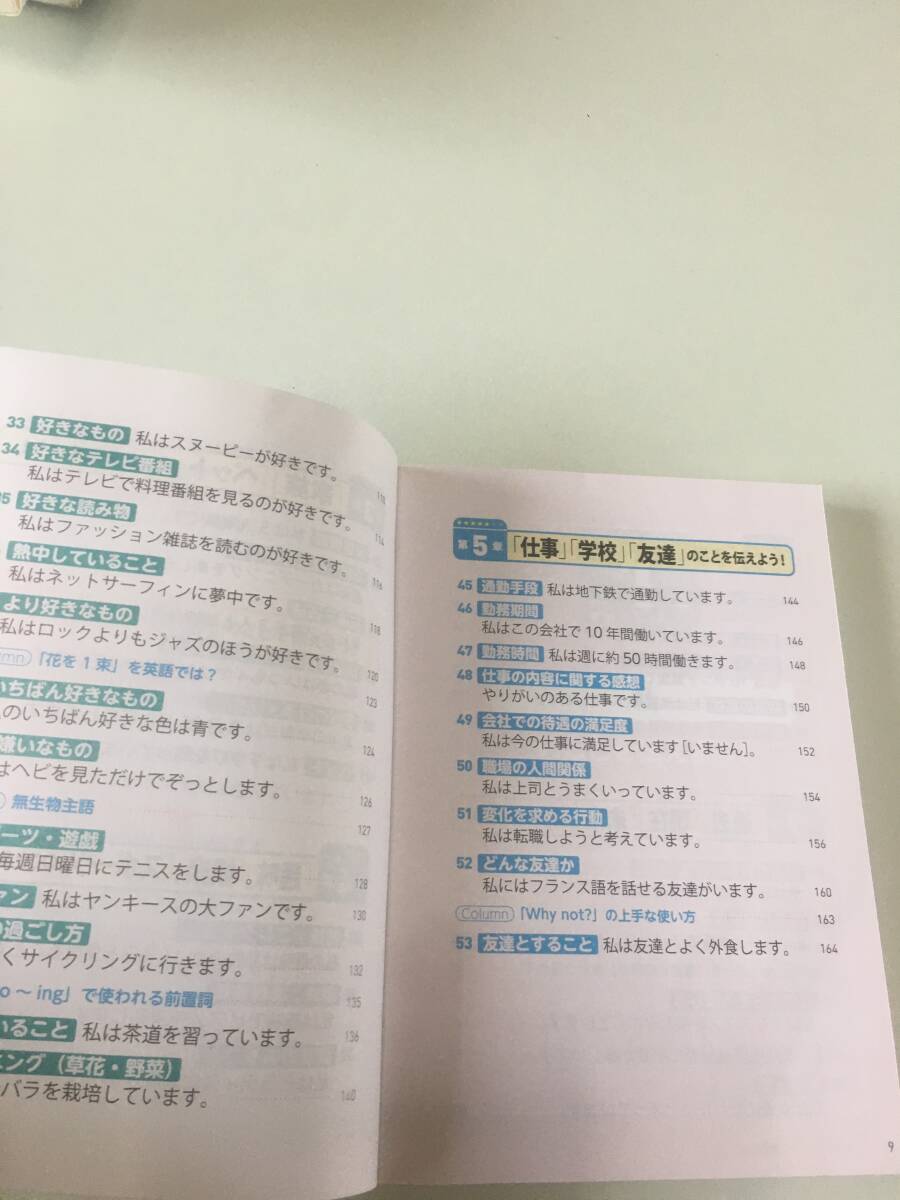 33 好きなもの 私はスヌーピーが好きです。
34 好きなテレビ番組
私はテレビで料理番組を見るのが好きです。 114
35 好きな読み物
私はファッション雑誌を読むのが好きです。 116
熱中していること
私はネットサーフィンに夢中です。 118
より好きなもの
私はロックよりもジャズのほうが好きです。 120
「花を1束」を英語では? 123
いちばん好きなもの
のいちばん好きな色は青です。 124
嫌いなもの
はヘビを見ただけでぞっとします。 126
無生物主語 127
ーツ・遊戯
毎週日曜日にテニスをします。 128
ァン 私はヤンキースの大ファンです。 130
過ごし方
くサイクリングに行きます。 132
o 〜 ing」で使われる前置詞 135
いること 私は茶道を習っています。 136
ニング(草花・野菜)
バラを栽培しています。 140
第5章 「仕事」「学校」「友達」のことを伝えよう!
45 通勤手段 私は地下鉄で通勤しています。 144
46 勤務期間
私はこの会社で10年間働いています。 146
47 勤務時間 私は週に約50時間働きます。 148
48 仕事の内容に関する感想
やりがいのある仕事です。 150
49 会社での待遇の満足度
私は今の仕事に満足しています[いません]。 152
50 職場の人間関係
私は上司とうまくいっています。 154
51 変化を求める行動
私は転職しようと考えています。 156
52 どんな友達か
私にはフランス語を話せる友達がいます。 160
Column 「Why not?」の上手な使い方 163
53 友達とすること 私は友達とよく外食します。 164
9